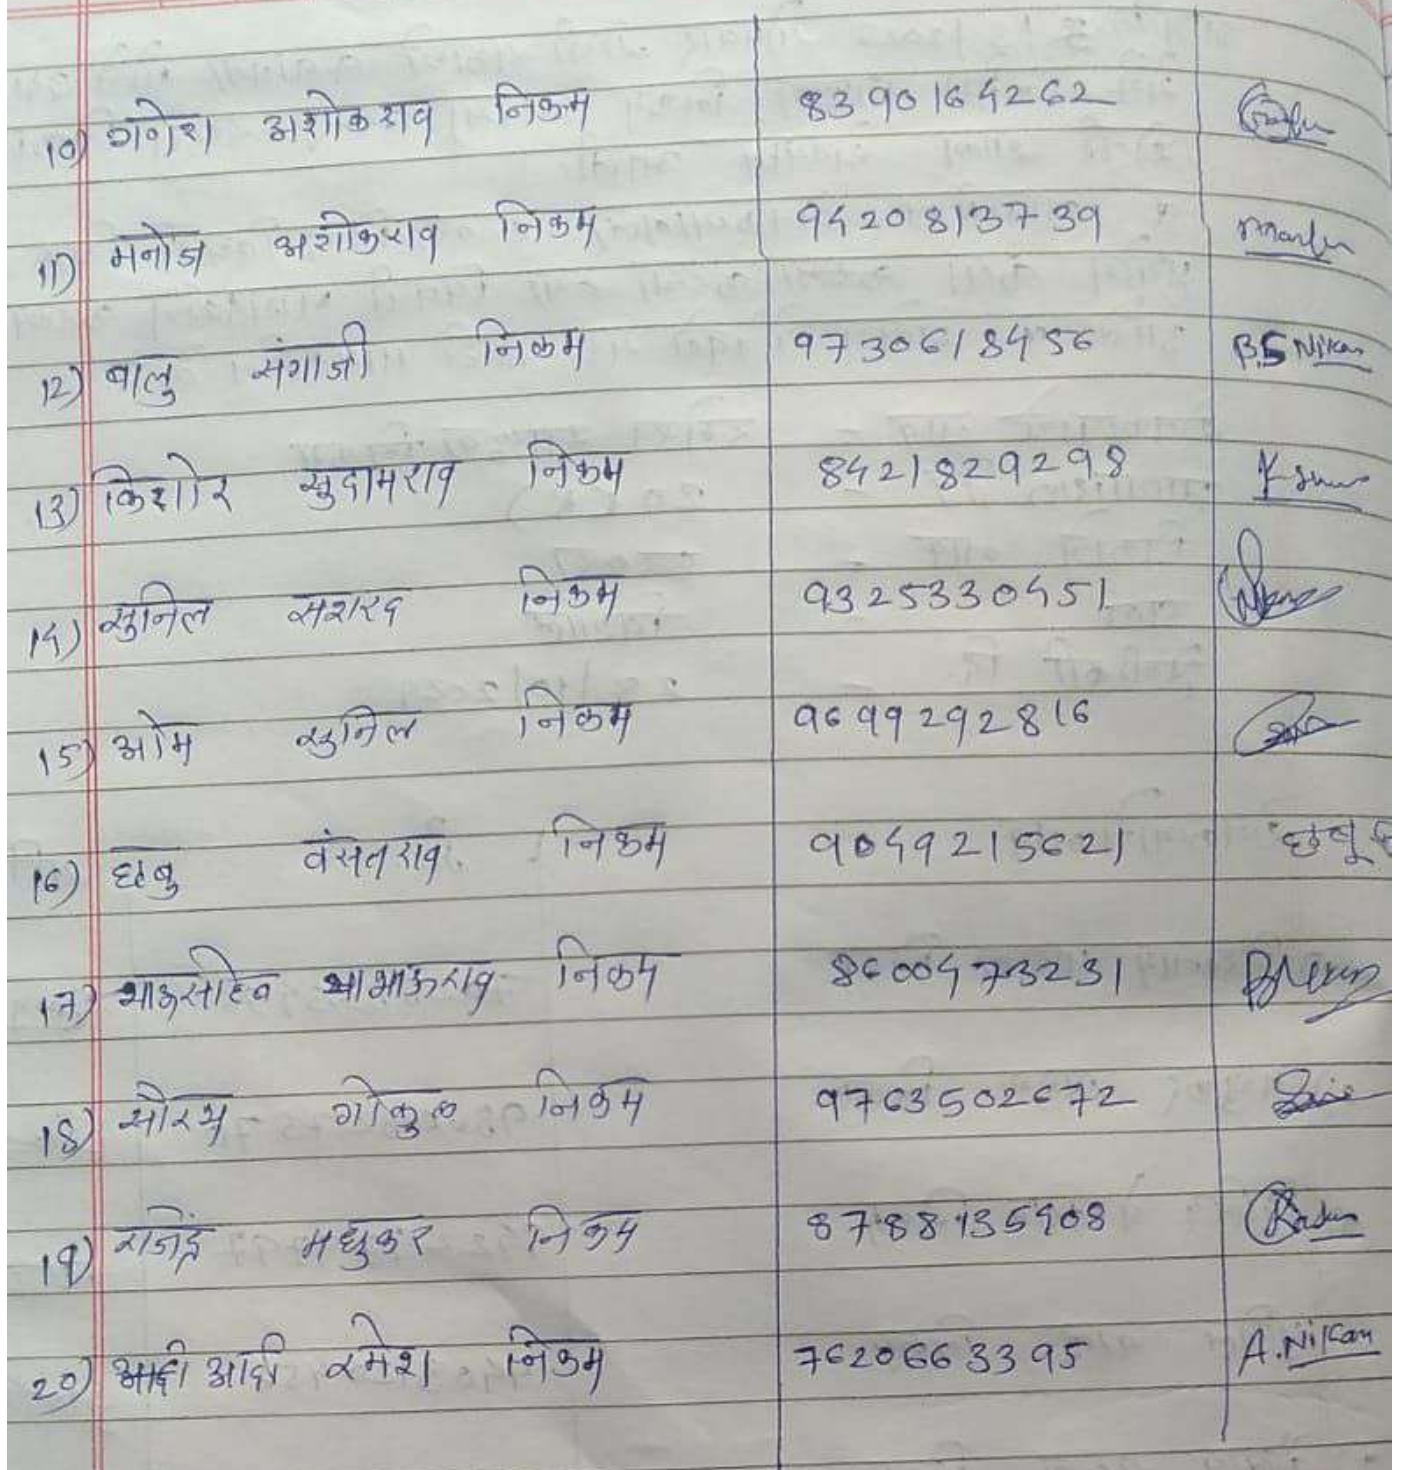 10) गणेश अशोकराव निकम 8390164262
11) मनोज अशोकराव निकम 9420813739
12) बालु संगाजी निकम 9730618456 B.S Nikam
13) किशोर सुदामराव निकम 8421829298
14) सुनिल निकम 9325330451
15) ओम सुनिल निकम 9699292816
16) छबु वंसतराव निकम 9049215621 छबू
17) भाऊसाहेब निकम 8600473231
18) सौरभ गोकुळ निकम 9763502672
19) राजेंद्र मधुकर निकम 8788135908
20) आदी रमेश निकम 7620663395 A.Nikam